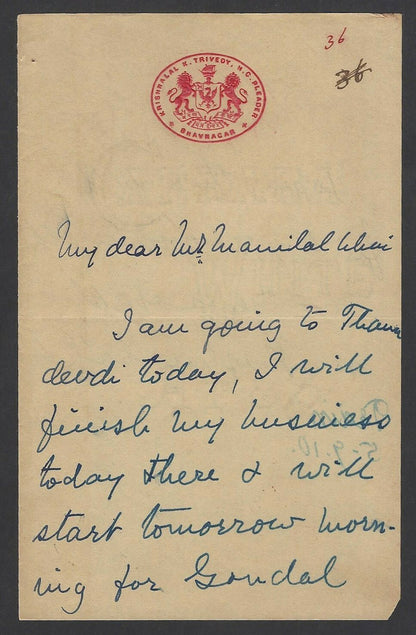 36
36
KRISHNALAL K. TRIVEDY, H.C. PLEADER
BHAVNAGAR
LEX REX
My dear Mr Manilal bhai
I am going to Thana
devdi today, I will
finish my business
today there & will
start tomorrow morn-
ing for Gondal